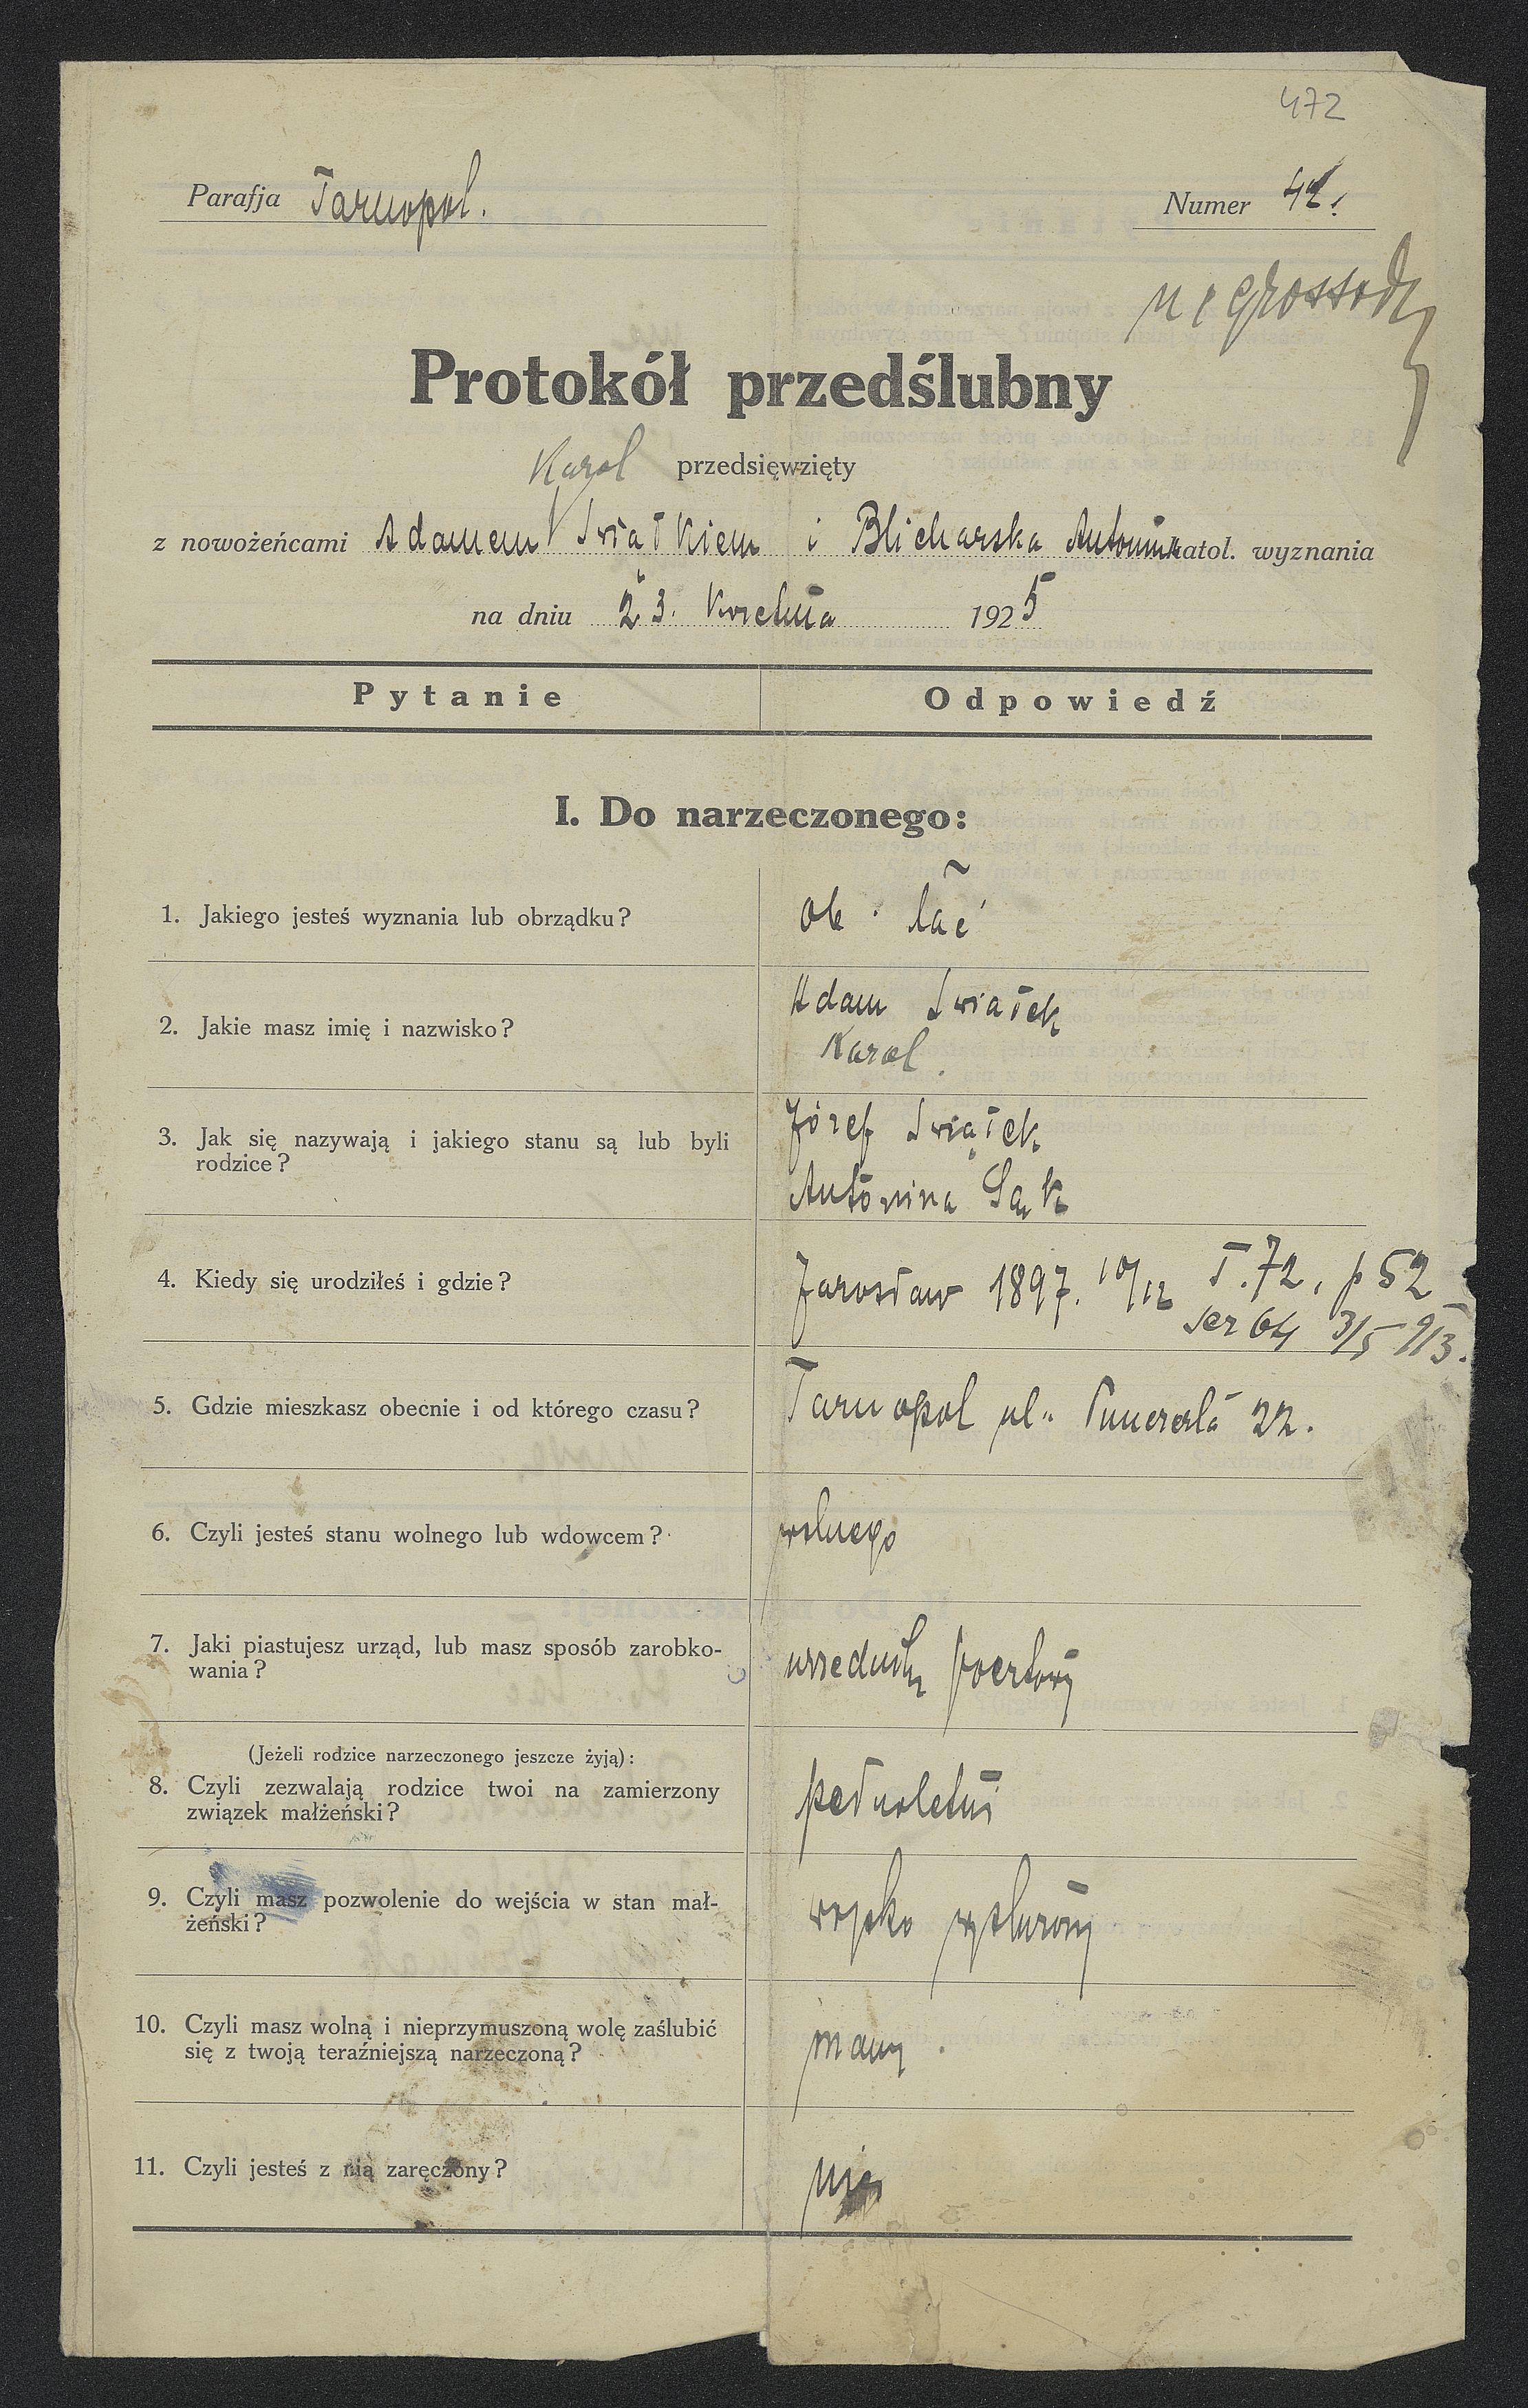 472
Parafja Tarnopol.
Numer 42.
Protokół przedślubny
Karol przedsięwzięty
z nowożeńcami Adamem Świątkiem i Blicharska Antonina katol. wyznania
na dniu 23. Kwietnia 1925
Pytanie Odpowiedź
I. Do narzeczonego:
1. Jakiego jesteś wyznania lub obrządku? ob. łać
2. Jakie masz imię i nazwisko? Adam Swiatek
Karol.
3. Jak się nazywają i jakiego stanu są lub byli
rodzice?
Józef Swiątek
Antonina Sąk
4. Kiedy się urodziłeś i gdzie? Jarosław 1897. 10/12 T. 72, p 52
ser 64 3/5 9/3.
5. Gdzie mieszkasz obecnie i od którego czasu? Tarnopol ul. 22.
6. Czyli jesteś stanu wolnego lub wdowcem? wolnego
7. Jaki piastujesz urząd, lub masz sposób zarobko-
wania?
urzednik pocztowy
(Jeżeli rodzice narzeczonego jeszcze żyją):
8. Czyli zezwalają rodzice twoi na zamierzony
związek małżeński?
pełnoletni
9. Czyli masz pozwolenie do wejścia w stan mał-
żeński?
wojsko wysłużony
10. Czyli masz wolną i nieprzymuszoną wolę zaślubić
się z twoją teraźniejszą narzeczoną?
mam.
11. Czyli jesteś z nią zaręczony? nie